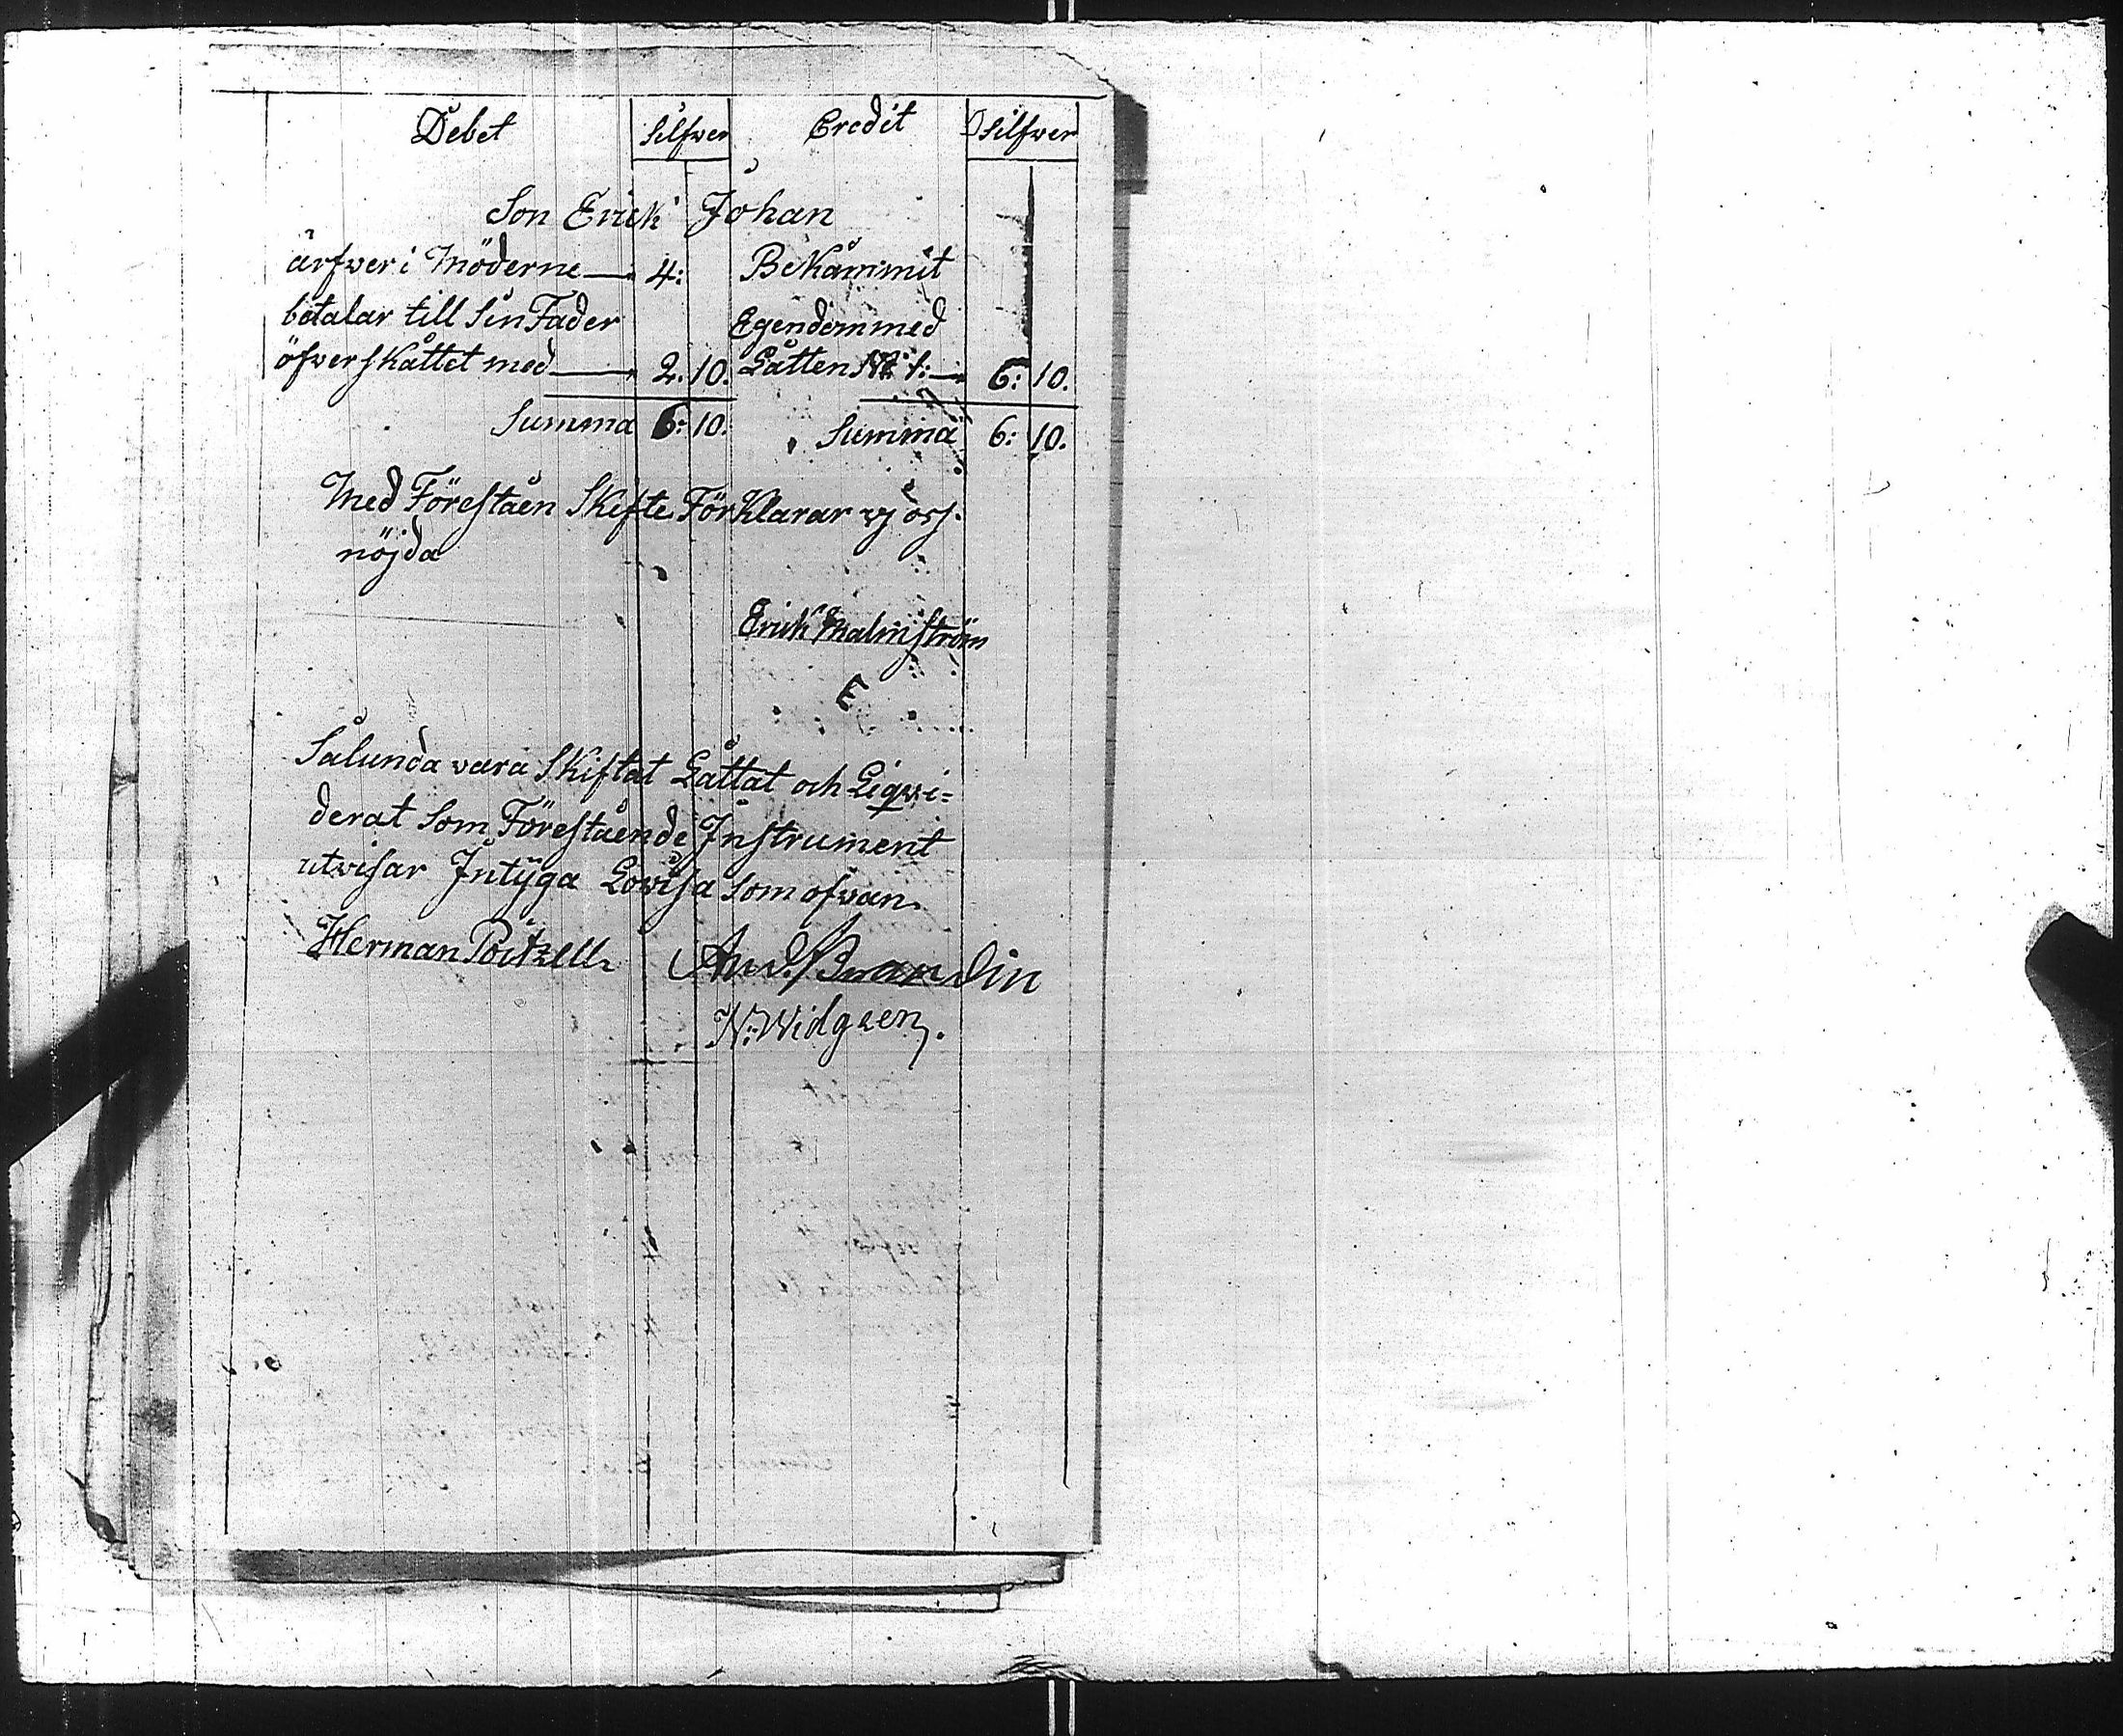 Debet Silfwer Credit Silfwer
Son Erick Johan
ärfwer i Möderne 4: Bekåmmit
betalar till Sin Fader Egendom med
öfverskåttet med 2. 10. Låtten N: 1: 6: 10.
Summa 6: 10. Summa 6: 10.
Med Föreståen Skifte Förklarar wj oss
nöjda
Erick Malmström
Sålunda vara Skiftat Låttat och Liqwi=
derat Som Förestående Instrument
utvisar Intyga Lovisa Som ofvan.
Herman And. Brandin
N: Widgren.